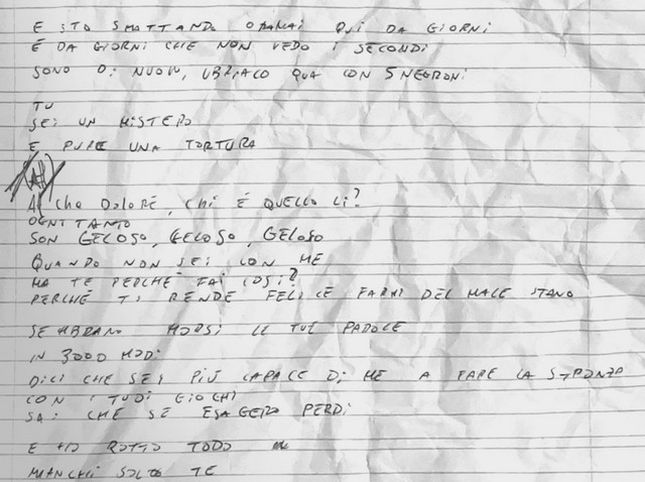 E STO SMATTANDO ORMAI QUI DA GIORNI
È DA GIORNI CHE NON VEDO I SECONDI
SONO Di NUOVO, UBRIACO QUA CON 5 NEGRONi
TU
SEI UN MiSTERO
E PURE UNA TORTURA
Ai Che DOLORE, Chi È QUELLO Li?
OGNI TANTO
SON GELOSO, GELOSO, GELOSO
QUANDO NON SEI CON ME
MA TE PERCHÉ FAI COSì?
PERCHÉ Ti RENDE FELICE FARMI DEL MALE
SEMBRANO MORSi LE TUE PAROLE
IN 3000 MODi
DICI CHE SEI PIÙ CAPACE Di ME A FARE LA STRONZA
CON I TUOI GIOCHI
SAi CHE SE ESAGERO PERDi
E HO ROTTO TODO
MANCHI SOLO TE